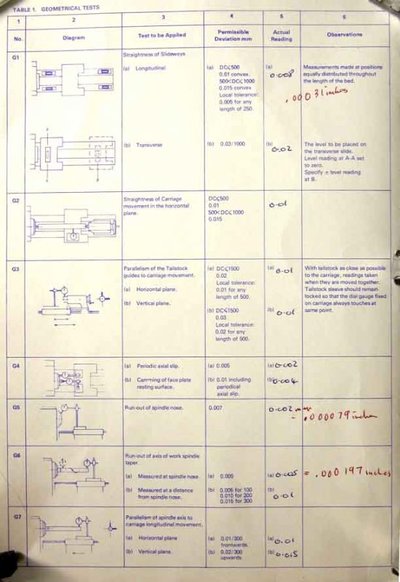 TABLE 1. GEOMETRICAL TESTS
1 2 3 4 5 6
No. Diagram Test to be Applied Permissible Deviation mm Actual Reading Observations
G1
Straightness of Slideways
(a) Longitudinal
(a) DC≤500
0.01 convex.
500<DC≤1000
0.015 convex
Local tolerance:
0.005 for any
length of 250.
(a)
0.008
.00031 inches
Measurements made at positions
equally distributed throughout
the length of the bed.
(b) Transverse
(b) 0.03/1000
(b)
0.02
The level to be placed on
the transverse slide.
Level reading at A-A set
to zero.
Specify ± level reading
at B.
G2
Straightness of Carriage
movement in the horizontal
plane.
DC≤500
0.01
500<DC≤1000
0.015
0.01
G3
Parallelism of the Tailstock
guides to carriage movement.
(a) Horizontal plane.
(b) Vertical plane.
(a) DC≤1500
0.02
Local tolerance:
0.01 for any
length of 500.
(b) DC≤1500
0.03
Local tolerance:
0.02 for any
length of 500.
(a)
0.01
(b)
0.01
With tailstock as close as possible
to the carriage, readings taken
when they are moved together.
Tailstock sleeve should remain
locked so that the dial gauge fixed
on carriage always touches at
same point.
G4
(a) Periodic axial slip.
(b) Camming of face plate
resting surface.
(a) 0.005
(b) 0.01 including
periodical
axial slip.
(a) 0.002
(b) 0.004
G5
Run-out of spindle nose.
0.007
0.002
.000079 inches
G6
Run-out of axis of work spindle
taper.
(a) Measured at spindle nose.
(b) Measured at a distance
from spindle nose.
(a) 0.005
(b) 0.006 for 100
0.010 for 200
0.016 for 300
(a) 0.005 = .000197 inches
(b)
0.01
G7
Parallelism of spindle axis to
carriage longitudinal movement.
(a) Horizontal plane
(b) Vertical plane.
(a) 0.01/300
frontwards.
(b) 0.02/300
upwards.
(a) 0.01
(b)
0.015